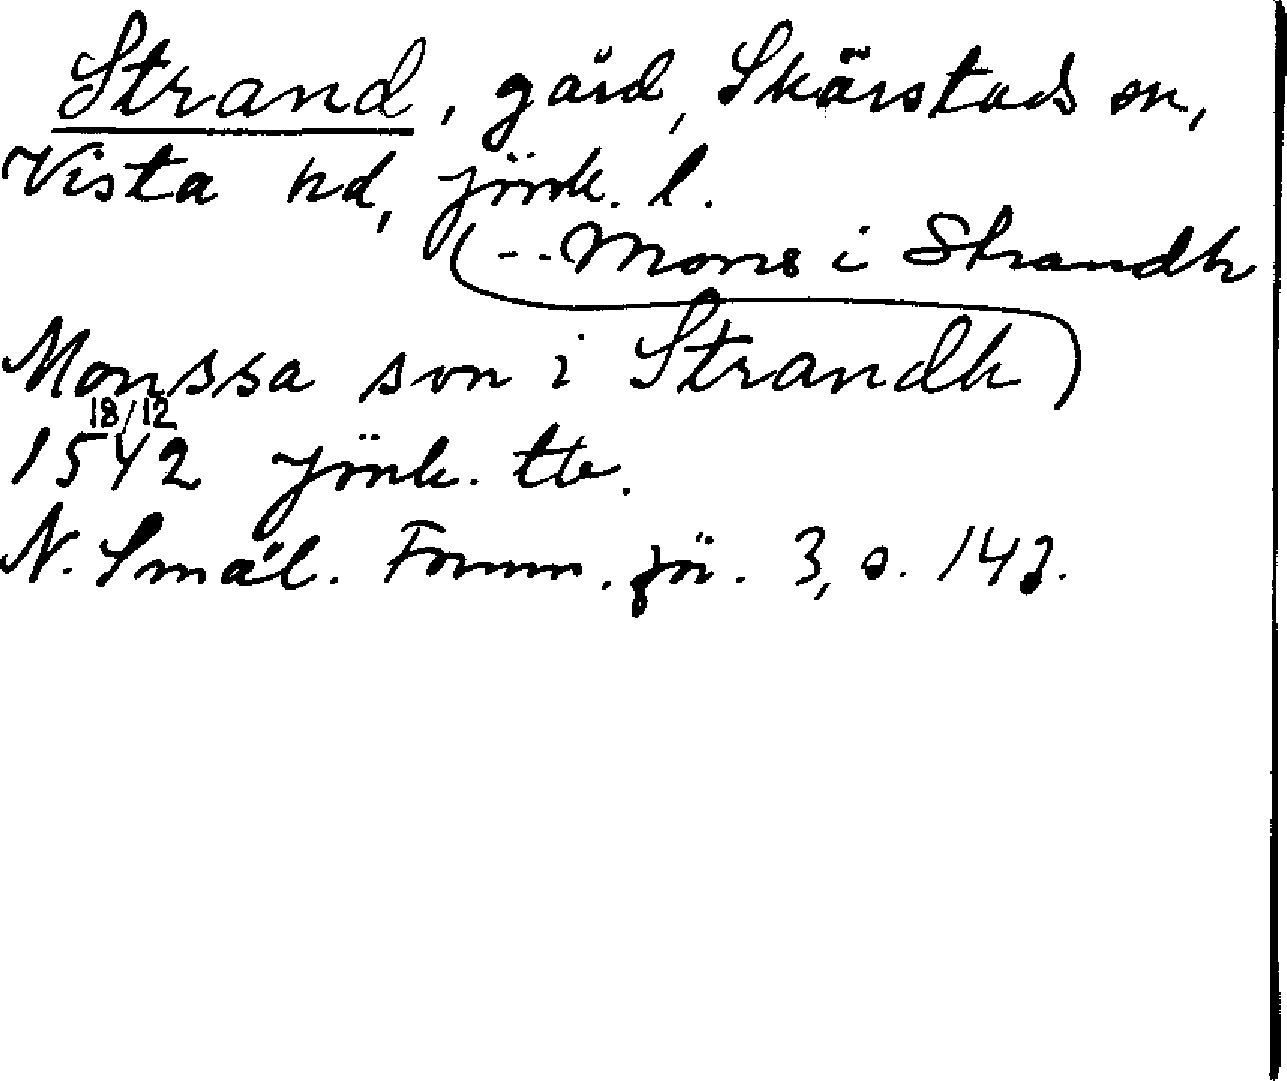 Strand, gård, Skärstads sn,
Vista hd, Jönk. l.
(-..Mons i Strandh
Monssa son i Strandh)
18/12
1542 Jönk. tb.
N. Smål. Fornm. för. 3, s. 143.